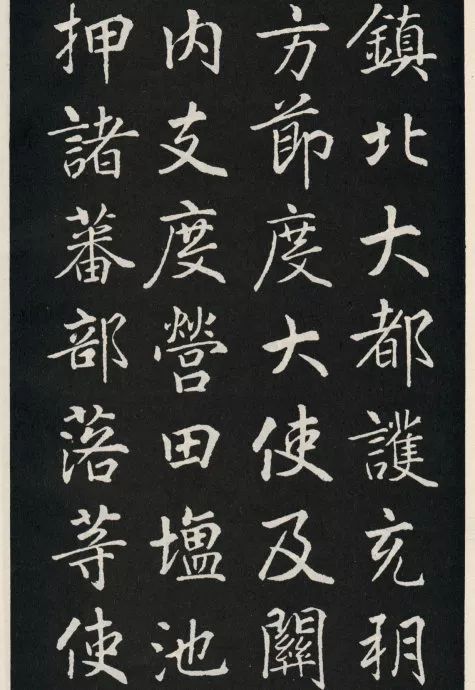 鎮北大都護充朔
方節度大使及關
内支度營田塩池
押諸蕃部落等使